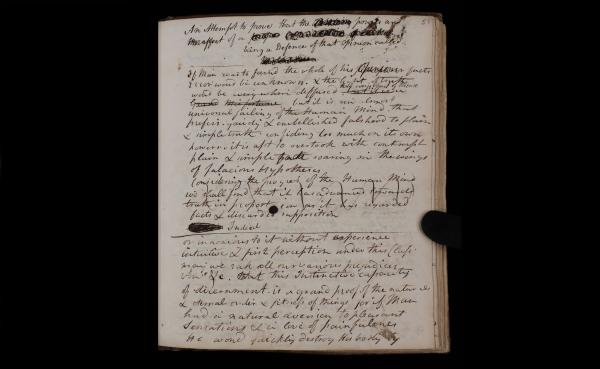 An Attempt to prove that the powers are
the effect of a
being a Defence of that Opinion called
If Man was to found the whole of his Opinions on facts
Error would be unknown & the light of truth
would be every where diffused
but it is an almost
universal failing of the Human Mind that
prefers gaudy & embellished falshood to plain
& simple truth confiding too much on its own
powers it is apt to overlook with contempt
plain & simple soaring on the wings
of falacious hypotheses
Considering the progress of the Human Mind
we shall find that it has advanced towards
truth in proportion as it has regarded
facts & discarded supposition
Indeed
to it without experience
intuitive & first perception under this Class
may we rank all our various prejudices
that this Instinctive capacity
of discernment is a grand proof of the nature
& eternal order & fitness of things for if Man
had a natural aversion to pleasant
Sensations & a love of painful ones
he would quickly destroy his body by